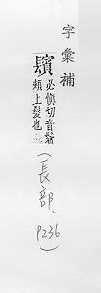 字彙補
必愼切音鬢
頰上髮也
(長部, P236)